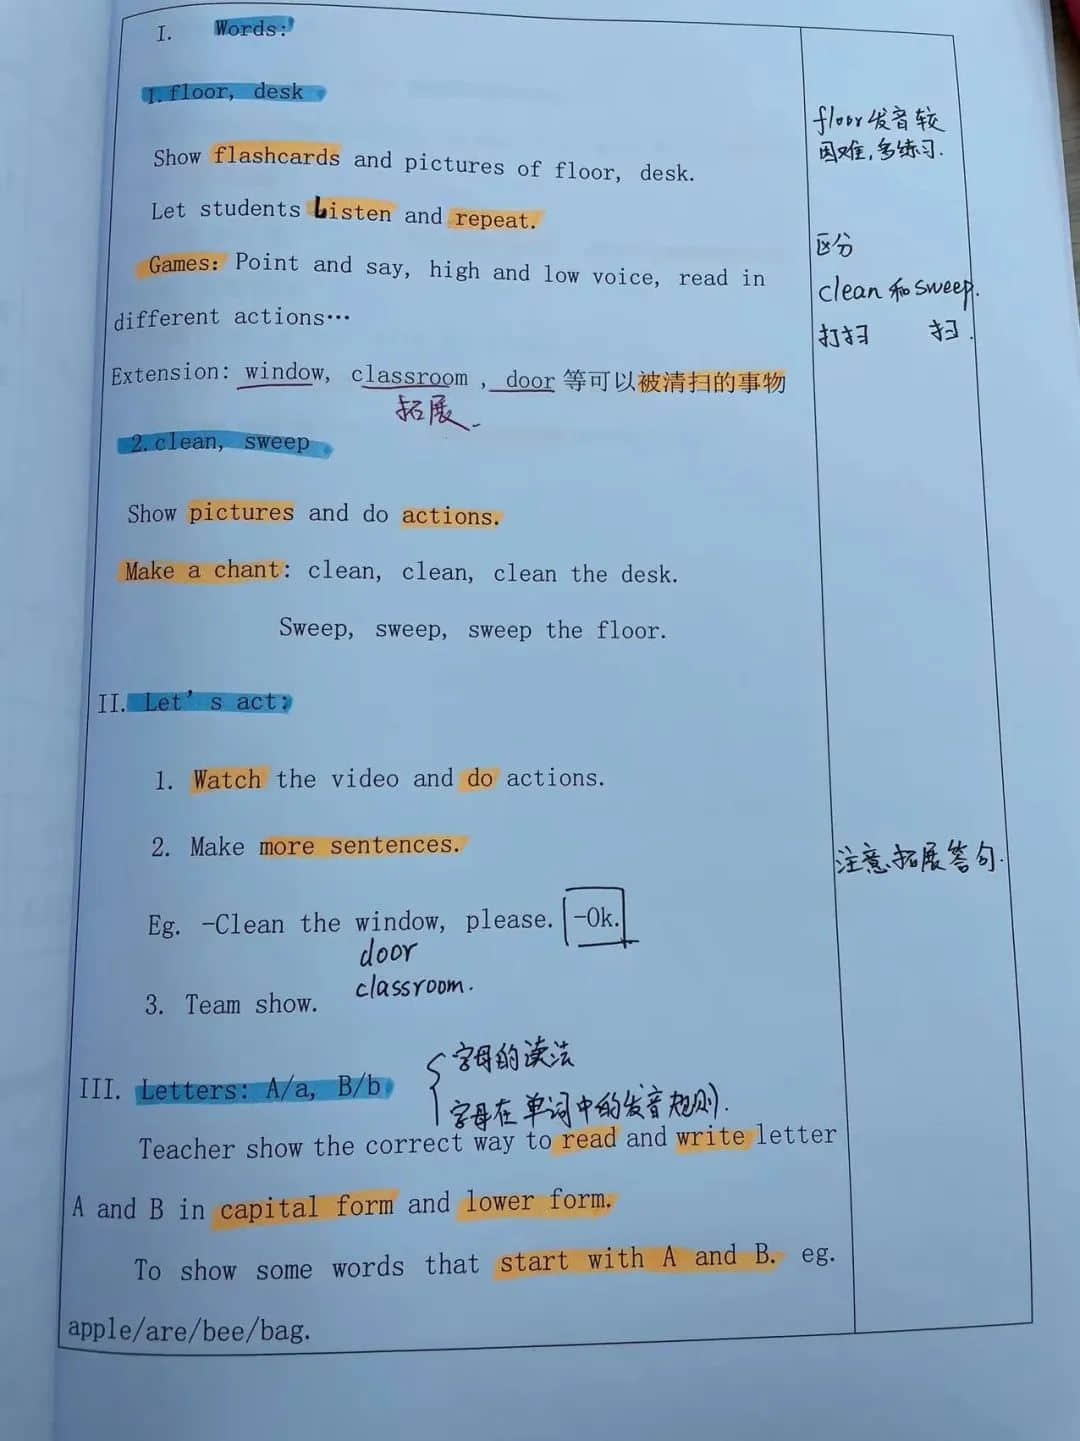 I. Words:
1.floor, desk
floor发音较
困难,多练习.
Show flashcards and pictures of floor, desk.
Let students Listen and repeat.
区分
Games: Point and say, high and low voice, read in
clean和sweep.
different actions…
打扫 扫.
Extension: window, classroom , door 等可以被清扫的事物
拓展.
2.clean, sweep
Show pictures and do actions.
Make a chant: clean, clean, clean the desk.
Sweep, sweep, sweep the floor.
II. Let's act:
1. Watch the video and do actions.
2. Make more sentences.
注意拓展答句.
Eg. -Clean the window, please. -Ok.
door
classroom.
3. Team show.
字母的读法
III. Letters: A/a, B/b
字母在单词中的发音规则.
Teacher show the correct way to read and write letter
A and B in capital form and lower form.
To show some words that start with A and B. eg.
apple/are/bee/bag.